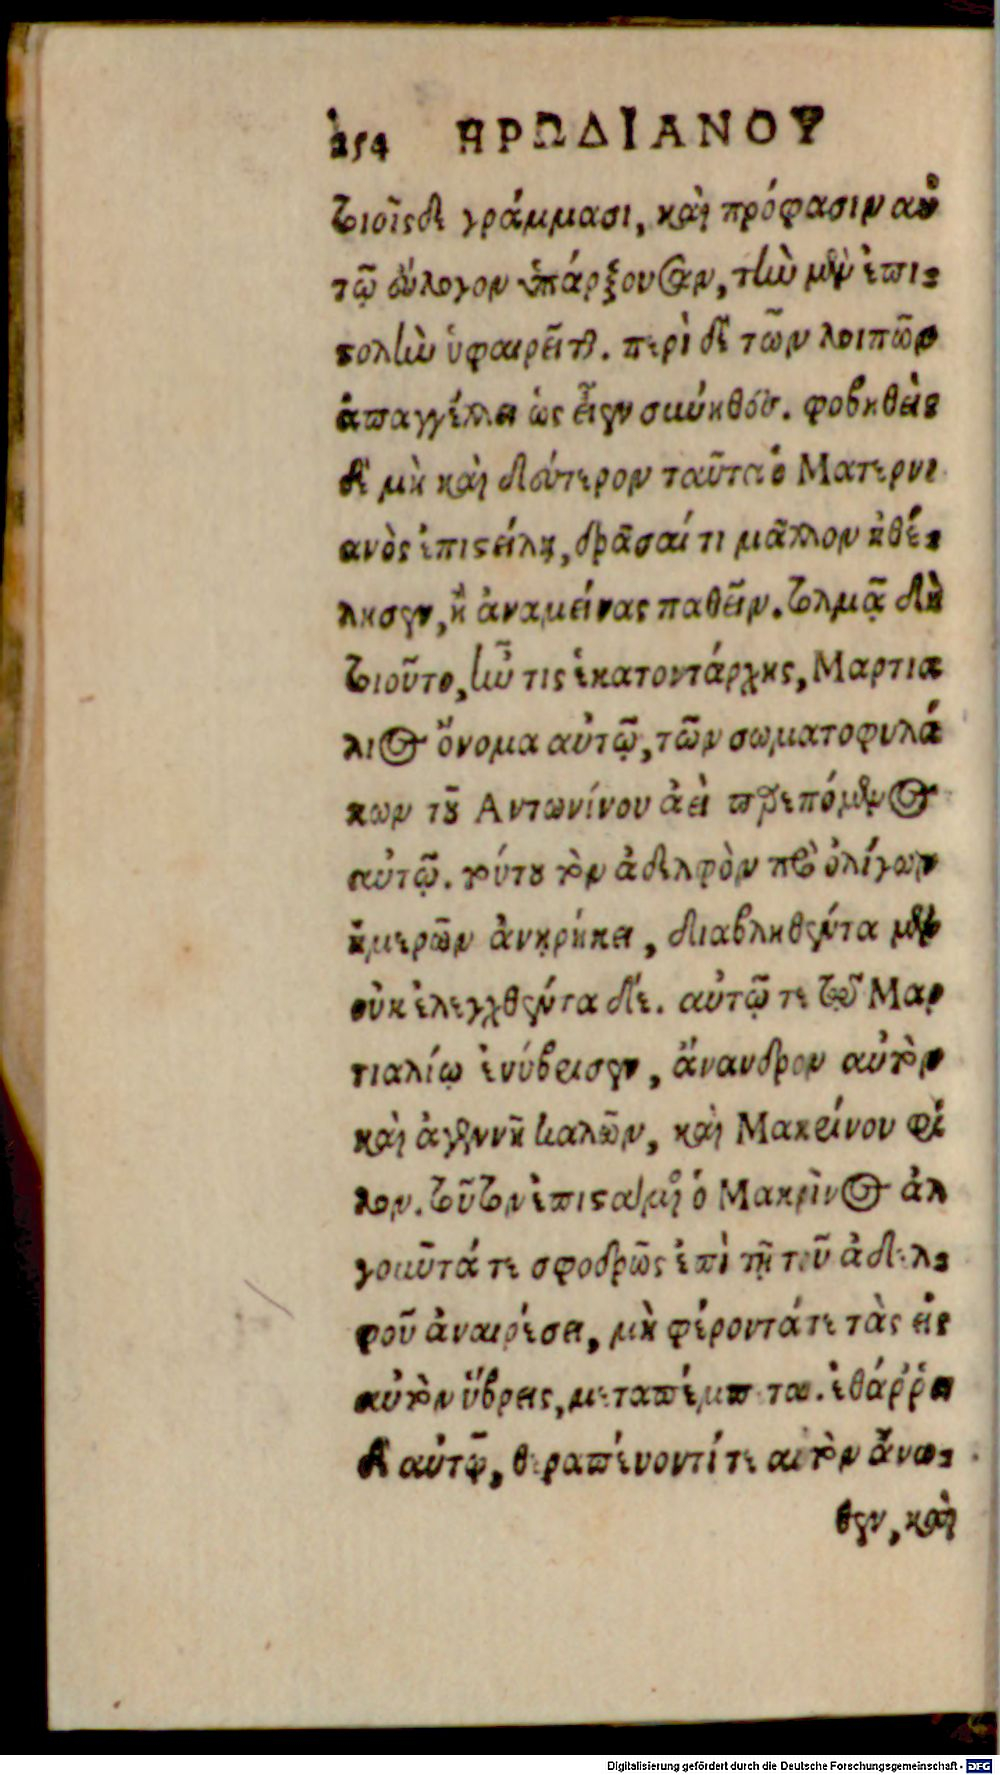 254 ΗΡΩΔΙΑΝΟΥ
τοιοῖσδε γράμμασι, καὶ πρόφασιν αὐ
τῷ εὔλογον ὑπάρξουσαν, τὴν μὲν ἐπι-
στολὴν ὑφαιρεῖται. περὶ δὲ τῶν λοιπῶν
ἀπαγγέλλει ὡς εἶχεν συνήθως. φοβηθεὶς
δὲ μὴ καὶ δεύτερον ταῦτα ὁ Ματερνι
ανὸς ἐπιστείλῃ, δρᾶσαί τι μᾶλλον ἠθέ-
λησεν, ἢ ἀναμείνας παθεῖν. τολμᾷ δὴ
τοιοῦτο, ἦν τις ἑκατοντάρχης, Μαρτιά
λιος ὄνομα αὐτῷ, τῶν σωματοφυλά
κων τοῦ Αντωνίνου ἀεὶ παρεπόμενος
αὐτῷ. τούτου τὸν ἀδελφὸν πρὸ ὀλίγων
ἡμερῶν ἀνῃρήκει, διαβληθέντα μὲν
οὐκ ἐλεγχθέντα δέ. αὐτῷ τε τῷ Μαρ
τιαλίῳ ἐνύβρισεν, ἄνανδρον αὐτὸν
καὶ ἀγεννῆ καλῶν, καὶ Μακρίνου φί
λον. τοῦτον ἐπιστάμενος ὁ Μακρῖνος ἀλ
γοιῦτά τε σφοδρῶς ἐπὶ τῇ τοῦ ἀδελ-
φοῦ ἀναιρέσει, μὴ φέροντά τε τὰς εἰς
αὐτὸν ὕβρεις, μεταπέμπεται. ἐθάῤῥει
δὲ αὐτῷ, θεραπεύοντί τε αὐτὸν ἄνω-
θεν, καὶ
Digitalisierung gefördert durch die Deutsche Forschungsgemeinschaft - DFG